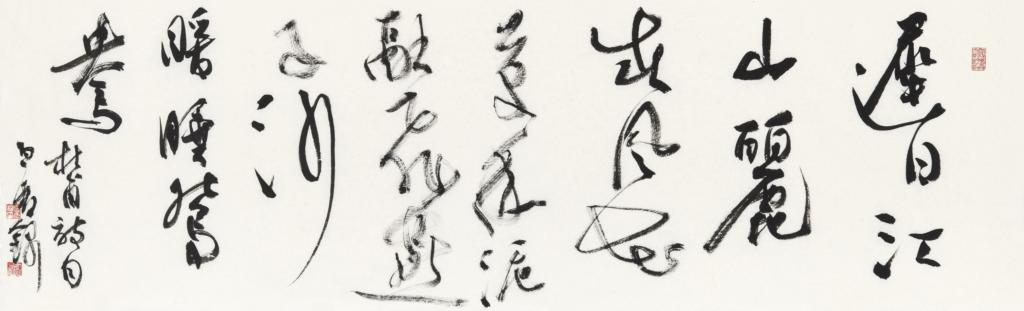 遲日江
山麗
春風花
草香泥
融飛燕
子沙
暖睡鴛
鴦
杜甫詩句